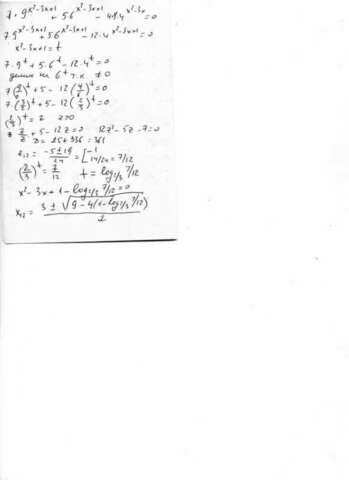 7·9^(x²-3x+1) + 5·6^(x²-3x+1) - 48·4^(x²-3x) = 0
7·9^(x²-3x+1) + 5·6^(x²-3x+1) - 12·4^(x²-3x+1) = 0
x²-3x+1 = t
7·9^t + 5·6^t - 12·4^t = 0
делим на 6^t т.к ≠0
7·(9/6)^t + 5 - 12(4/6)^t = 0
7·(3/2)^t + 5 - 12(2/3)^t = 0
(2/3)^t = z z>0
7/z + 5 - 12z = 0 12z² - 5z - 7 = 0
D = 25 + 336 = 361
z₁₂ = (-5±19)/24 = [ -1 14/24 = 7/12
(2/3)^t = 7/12 t = log₂/₃ 7/12
x² - 3x + 1 - log₂/₃ 7/12 = 0
x₁₂ = (3 ± √(9 - 4(1 - log₂/₃ 7/12)))/2